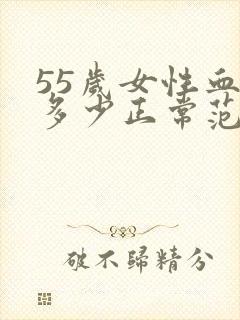 55歲女性血
多少正常范
破不歸精分